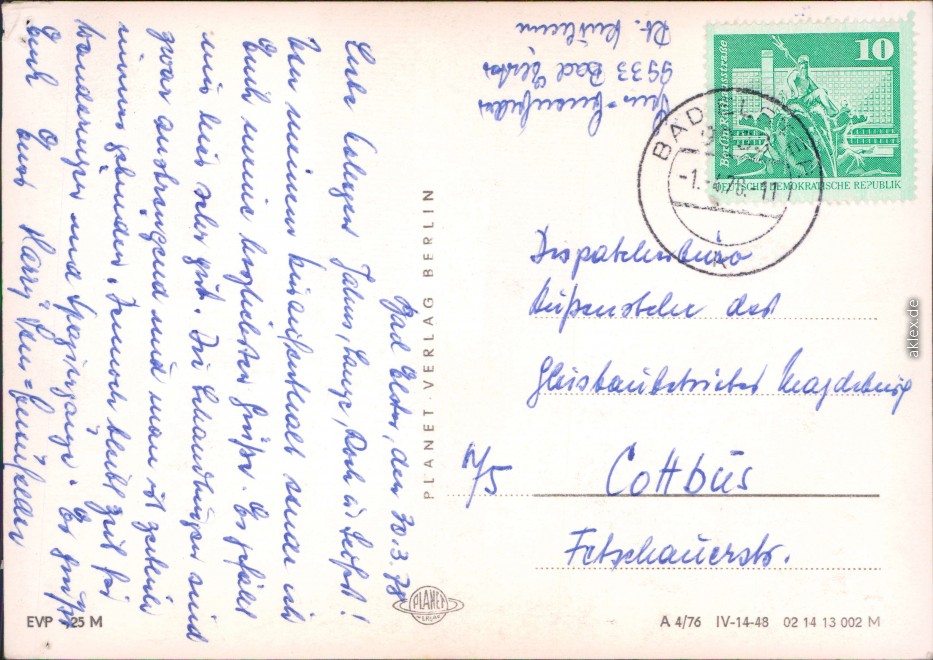 Bad Elster, den 30.3.78
Liebe Kollegen Jahns, Lange, Koch u.
Von meinem Kuraufenthalt sende ich
Euch meine herzlichsten Grüße. Es gefällt
mir hier sehr gut. Die Behandlungen sind
zwar anstrengend und man ist zeitlich
gebunden, dennoch bleibt Zeit für
Wanderungen und Spaziergänge. Es grüßt
Euch Euer Harry
9933 Bad Elster
10
Berlin Rathausstraße
DEUTSCHE DEMOKRATISCHE REPUBLIK
BAD ELSTER
PLANET-VERLAG BERLIN
Dispatcherbüro
Außenstelle des
Gleisbaubetriebes Magdeburg
N/5 Cottbus
Vetschauerstr.
PLANET
VERLAG
EVP -,25 M
A 4/76 IV-14-48 02 14 13 002 M
aklex.de